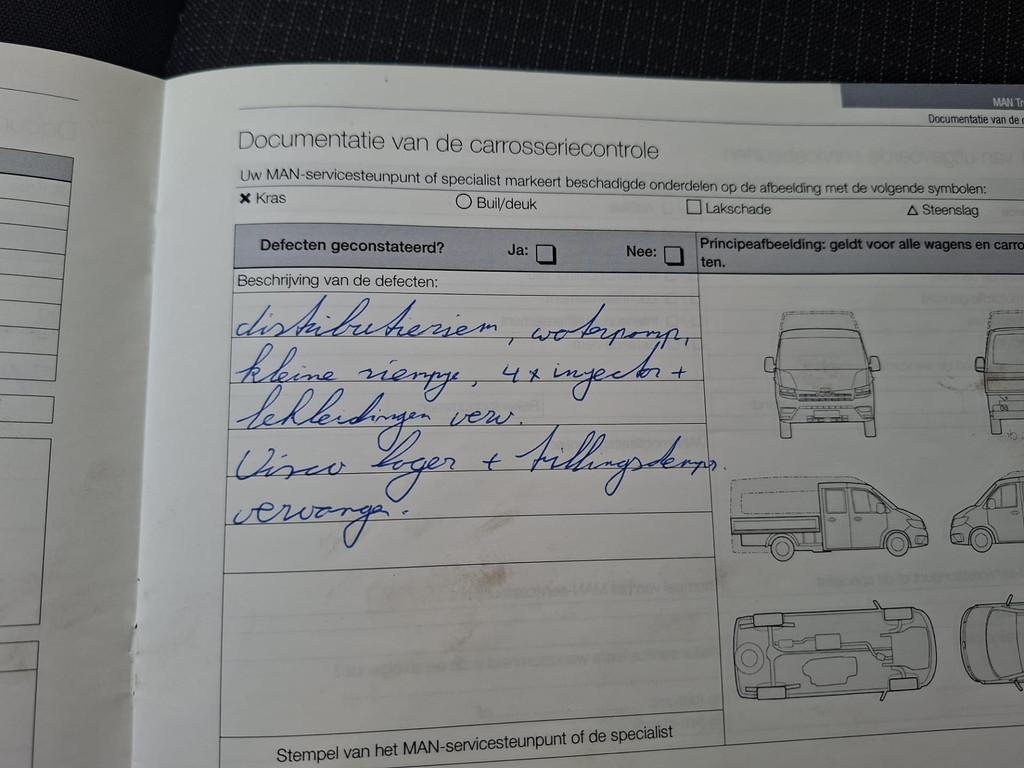 MAN Tr
Documentatie van de c
Documentatie van de carrosseriecontrole
Uw MAN-servicesteunpunt of specialist markeert beschadigde onderdelen op de afbeelding met de volgende symbolen:
Kras
Buil/deuk
Lakschade
Steenslag
Defecten geconstateerd? Ja: Nee:
Principeafbeelding: geldt voor alle wagens en carro
ten.
Beschrijving van de defecten:
distributieriem, waterpomp,
kleine riempje, 4x injector +
lekleidingen verv.
Visco lager + trillingsdemper
vervangen.
Stempel van het MAN-servicesteunpunt of de specialist